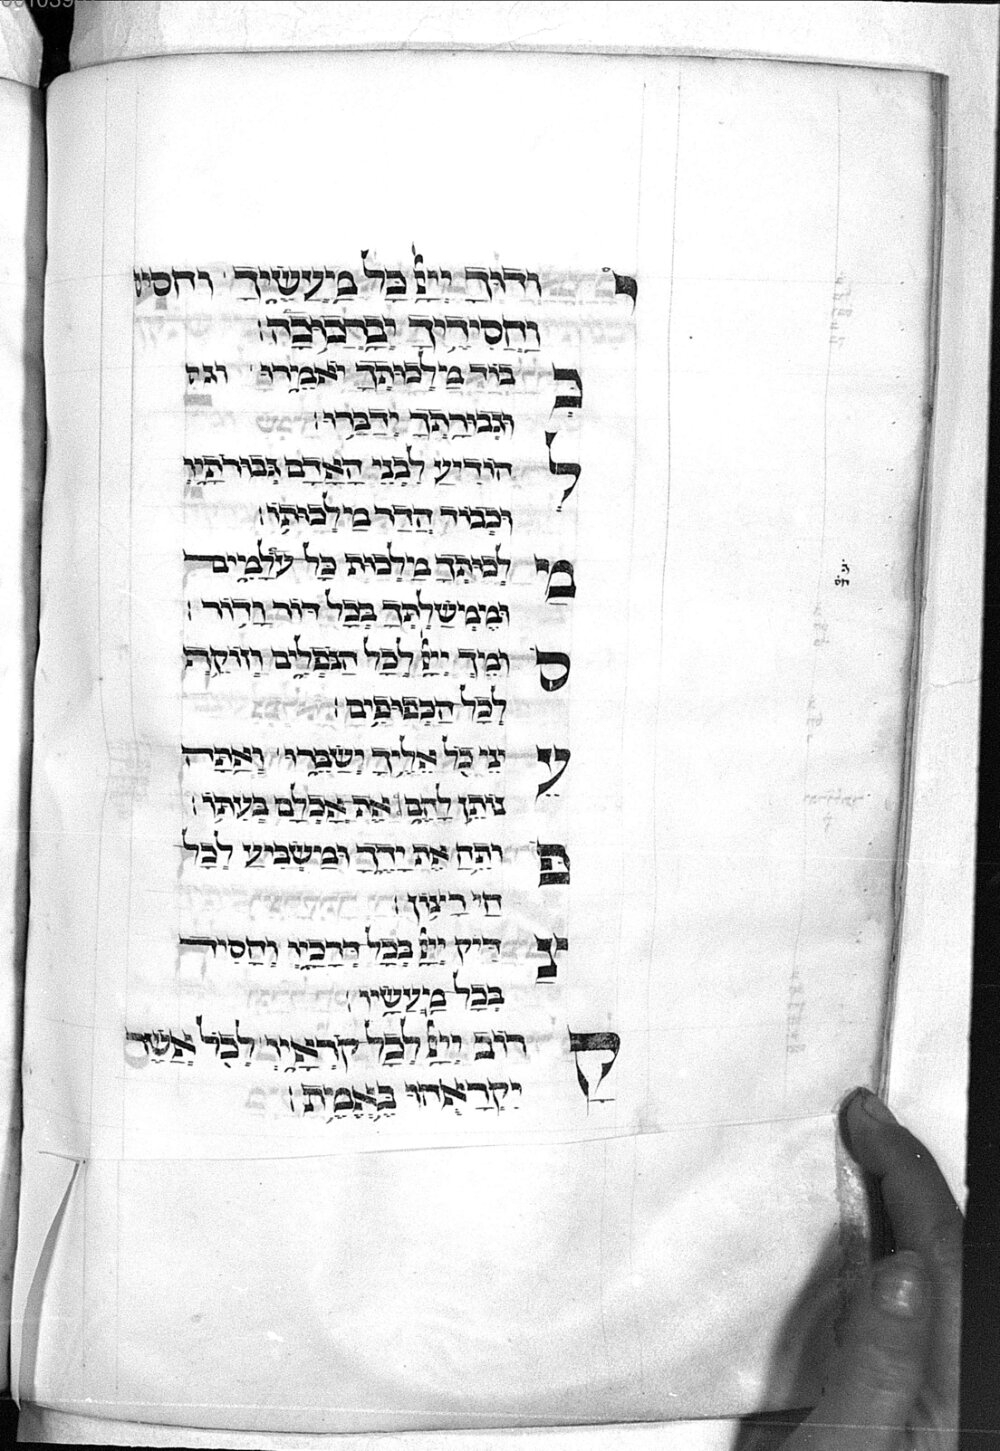 י וֹדוּךָ יְיָ כָּל מַעֲשֶׂיךָ וחסי
וַחֲסִידֶיךָ יְבָרְכוּכָה׃
כְּ בוֹד מַלְכוּתְךָ יֹאמֵרוּ וגב
וּגְבוּרָתְךָ יְדַבֵּרוּ׃
לְ הוֹדִיעַ לִבְנֵי הָאָדָם גְּבוּרֹתָיו
וּכְבוֹד הֲדַר מַלְכוּתוֹ׃
מַ לְכוּתְךָ מַלְכוּת כָּל עֹלָמִים
וּמֶמְשַׁלְתְּךָ בְּכָל דּוֹר וָדוֹר׃
ס וֹמֵךְ יְיָ לְכָל הַנֹּפְלִים וְזוֹקֵף
לְכָל הַכְּפוּפִים׃
עֵ ינֵי כֹל אֵלֶיךָ יְשַׂבֵּרוּ וְאַתָּה
נוֹתֵן לָהֶם אֶת אָכְלָם בְּעִתּוֹ׃
פּ וֹתֵחַ אֶת יָדֶךָ וּמַשְׂבִּיעַ לְכָל
חַי רָצוֹן׃
צַ דִּיק יְיָ בְּכָל דְּרָכָיו וְחָסִיד
בְּכָל מַעֲשָׂיו׃
קָ רוֹב יְיָ לְכָל קֹרְאָיו לְכֹל אֲשֶׁר
יִקְרָאֻהוּ בֶאֱמֶת׃